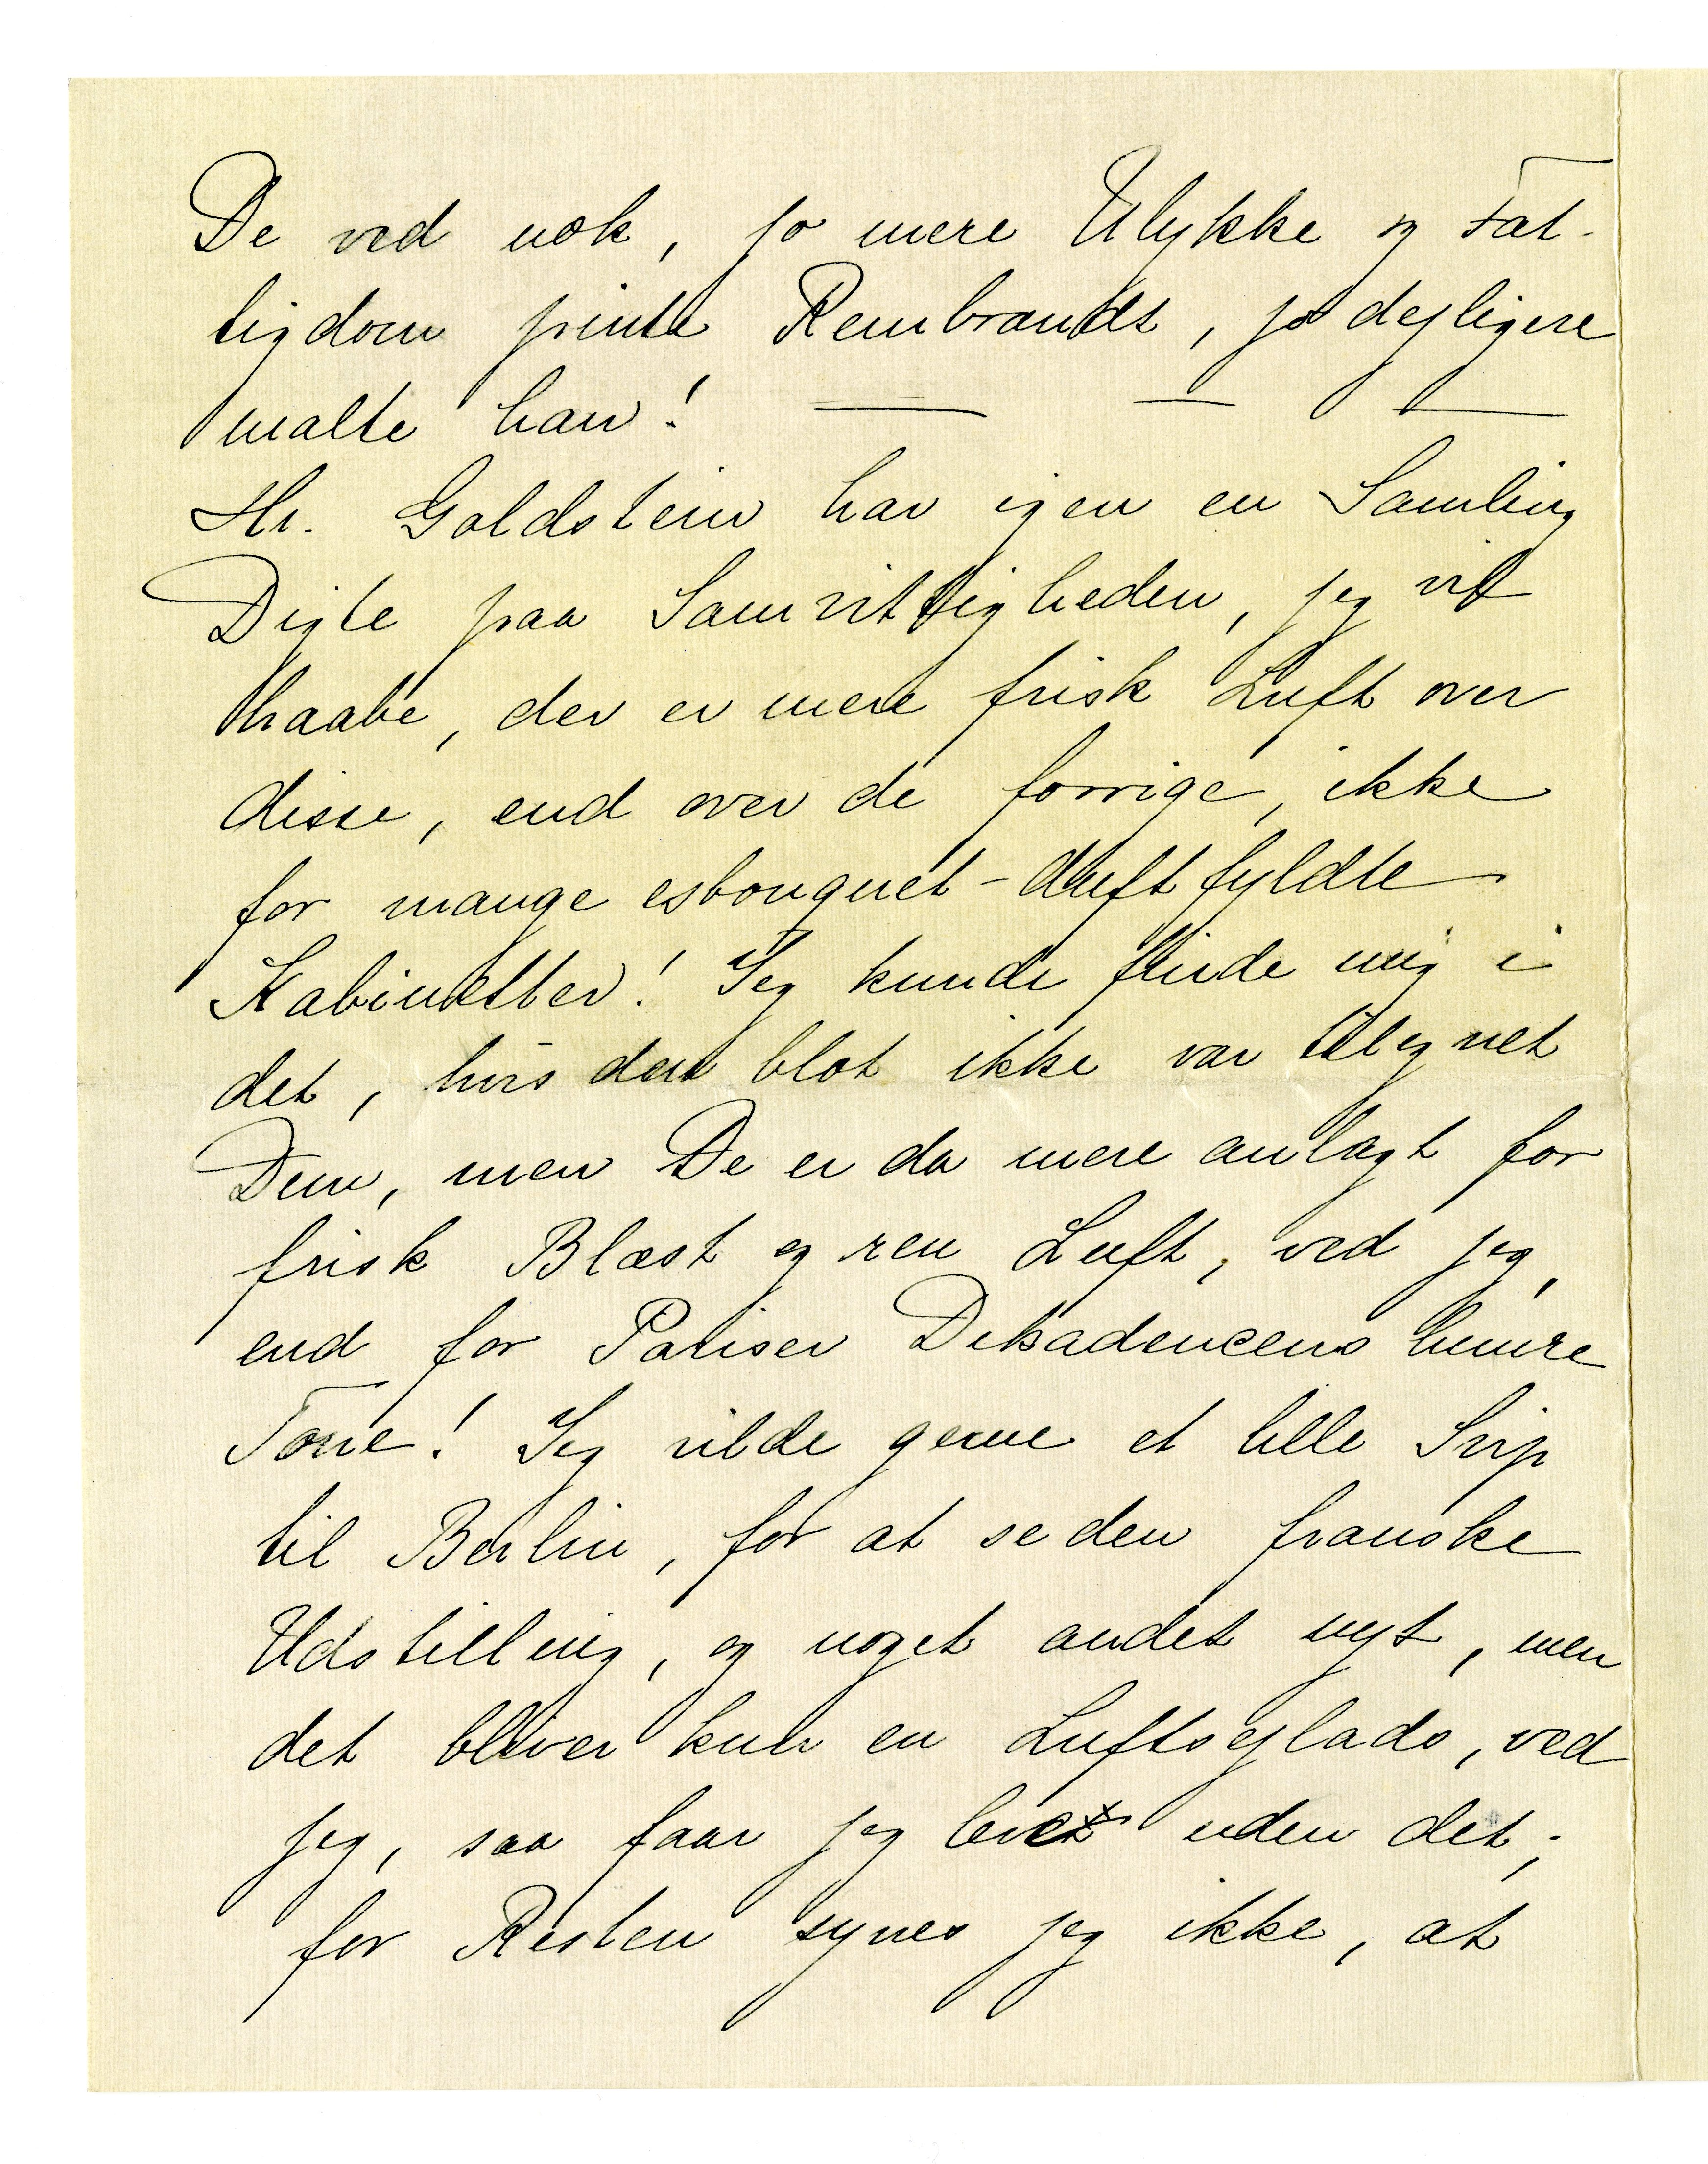 De ved nok, jo mere Ulykke og Fat-
tigdom pinte Rembrandt, jo dejligere
malte han! — — —
Hr. Goldstein har igen en Samling
Digte paa Samvittigheden, jeg vil
haabe, der er mere frisk Luft over
disse, end over de forrige, ikke
for mange esbouquet-duftfyldte
Kabinetter! Jeg kunde finde mig i
det, hvis den blot ikke var tilegnet
Dem, men De er da mere anlagt for
frisk Blæst og ren Luft, ved jeg,
end for Pariser Dekadencens lumre
Tone! Jeg vilde gerne et lille Svip
til Berlin, for at se den franske
Udstilling, og noget andet nyt, men
det bliver kun en Luftsejlads, ved
jeg, saa faar jeg leve uden det;
for Resten synes jeg ikke, at